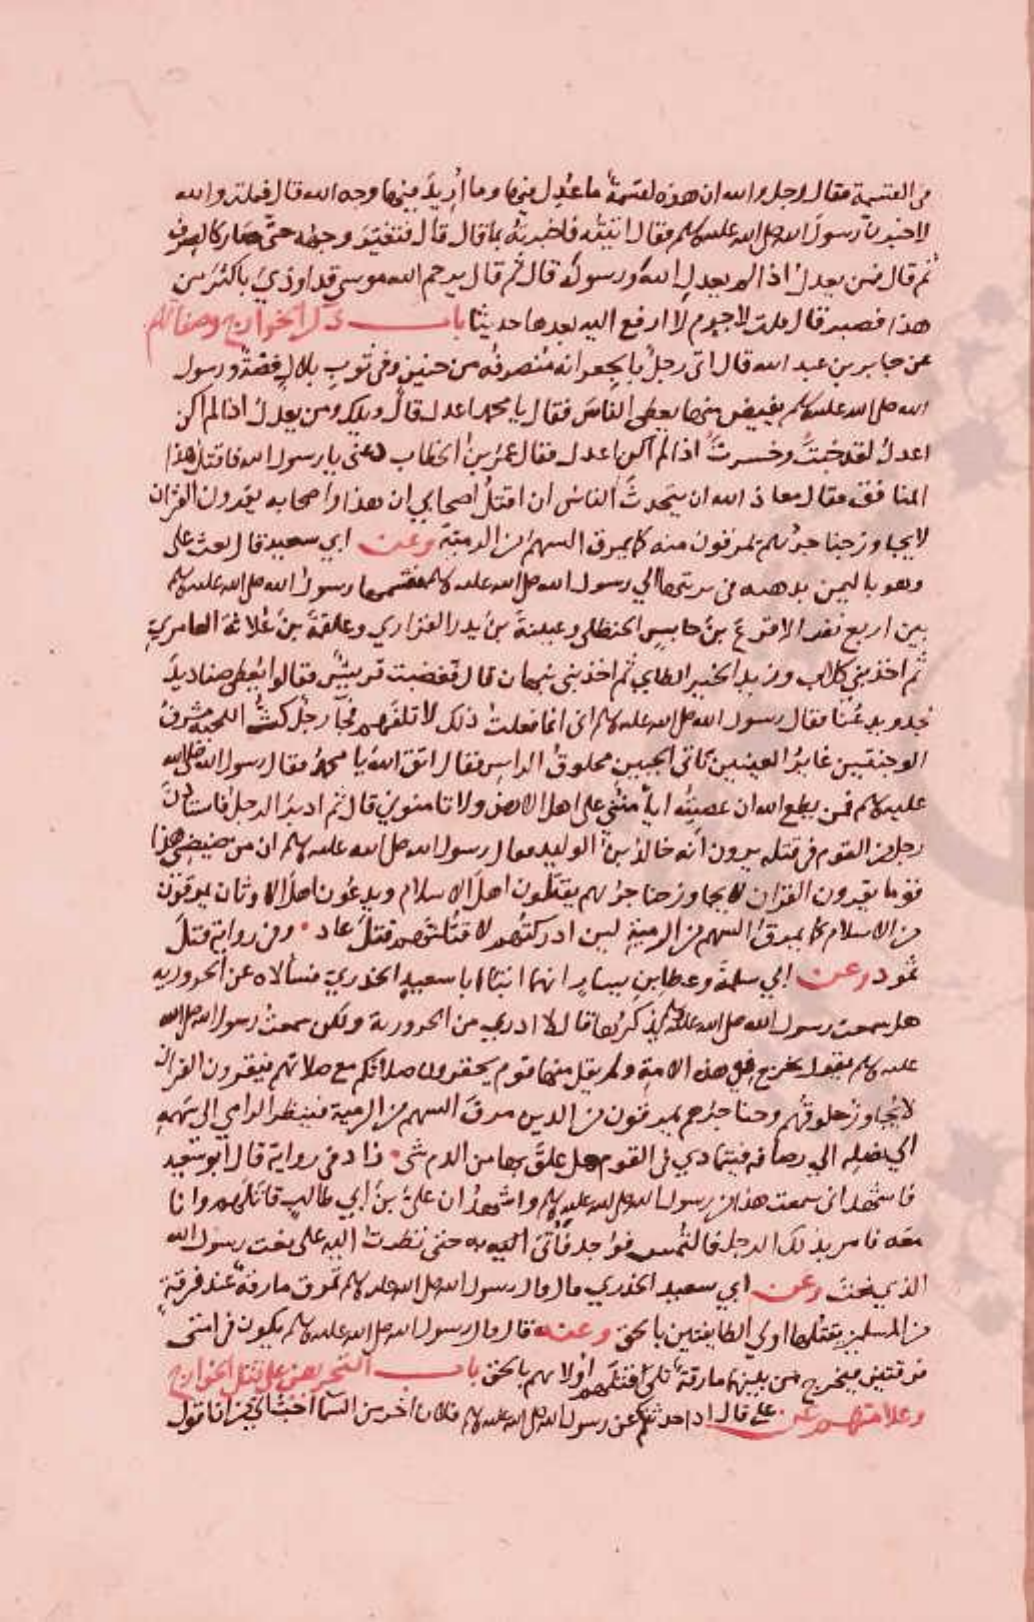 في القسمة فقال رجل والله ان هذه لقسمة ما عدل فيها وما اريد فيها وجه الله قال فقلت والله
لاخبرن رسول الله صلى الله عليه وسلم فقال اتيته فاخبرته بما قال قال فتغير وجهه حتى صار كالصرف
ثم قال فمن يعدل اذا لم يعدل الله ورسوله قال ثم قال يرحم الله موسى قد اوذي باكثر من
هذا فصبر قال قلت لا جرم لا ارفع اليه بعدها حديثا باب ذكر الخوارج وصفاتهم
عن جابر بن عبد الله قال اتى رجل بالجعرانة منصرفه من حنين وفي ثوب بلال فضة ورسول
الله صلى الله عليه وسلم يقبض منها يعطي الناس فقال يا محمد اعدل قال ويلك ومن يعدل اذا لم اكن
اعدل لقد خبت وخسرت اذا لم اكن اعدل فقال عمر بن الخطاب دعني يا رسول الله فاقتل هذا
المنافق فقال معاذ الله ان يتحدث الناس ان اقتل اصحابي ان هذا واصحابه يقرون القران
لا يجاوز حناجرهم يمرقون منه كما يمرق السهم من الرمية وعن ابي سعيد قال بعث علي
وهو باليمن بذهبه في تربتها الي رسول الله صلى الله عليه وسلم فقسمها رسول الله صلى الله عليه وسلم
بين اربع نفر الاقرع بن حابس الحنظلي وعيينة بن بدر الفزاري وعلقمة بن علاثة العامري
ثم احد بني كلاب وزيد الخير الطاي ثم احد بني نبهان قال فغضبت قريش فقالوا ايعطي صناديد
نجد ويدعنا فقال رسول الله صلى الله عليه وسلم اني انما فعلت ذلك لاتلفهم فجا رجل كث اللحية مشرف
الوجنتين غاير العينين ناتي الجبين محلوق الراس فقال اتق الله يا محمد فقال رسول الله صلى الله
عليه وسلم فمن يطع الله ان عصيته ايامنني على اهل الارض ولا تامنوني قال ثم ادبر الرجل فاستاذن
رجل من القوم في قتله يرون انه خالد بن الوليد فقال رسول الله صلى الله عليه وسلم ان من ضيضي هذا
قوما يقرون القران لا يجاوز حناجرهم يقتلون اهل الاسلام ويدعون اهل الاوثان يمرقون
من الاسلام كما يمرق السهم من الرمية لين ادركتهم لاقتلنهم قتل عاد وفي رواية قتل
ثمود وعن ابي سلمة وعطا بن يسار انهما اتيا ابا سعيد الخدري فسالاه عن الحرورية
هل سمعت رسول الله صلى الله عليه وسلم يذكرها قال لا ادري من الحرورية ولكن سمعت رسول الله صلى الله
عليه وسلم يقول يخرج في هذه الامة ولم يقل منها قوم يحقرون صلاتكم مع صلاتهم فيقرون القران
لا يجاوز حلوقهم وحناجرهم يمرقون من الدين مروق السهم من الرمية فينظر الرامي الى سهمه
الي نصله الي رصافه فيتمادي في القوم هل علق بها من الدم شي زاد في رواية قال ابو سعيد
فاشهد اني سمعت هذا من رسول الله صلى الله عليه وسلم واشهد ان علي بن ابي طالب قاتلهم وانا
معه فامر بذلك الرجل فالتمس فوجد فاتى به حتى نظرت اليه على نعت رسول الله
الذي نعت وعن ابي سعيد الخدري قال قال رسول الله صلى الله عليه وسلم تمرق مارقة عند فرقة
من المسلمين يقتلها اولي الطايفتين بالحق وعنه قال قال رسول الله صلى الله عليه وسلم يكون في امتي
فرقتين فيخرج من بينهما مارقة تلي قتلهم اولاهم بالحق باب التحريض على قتل الخوارج
وعلامتهم عن علي قال اذا حدثتكم عن رسول الله صلى الله عليه وسلم فلان اخر من السما احب الي من ان اقول